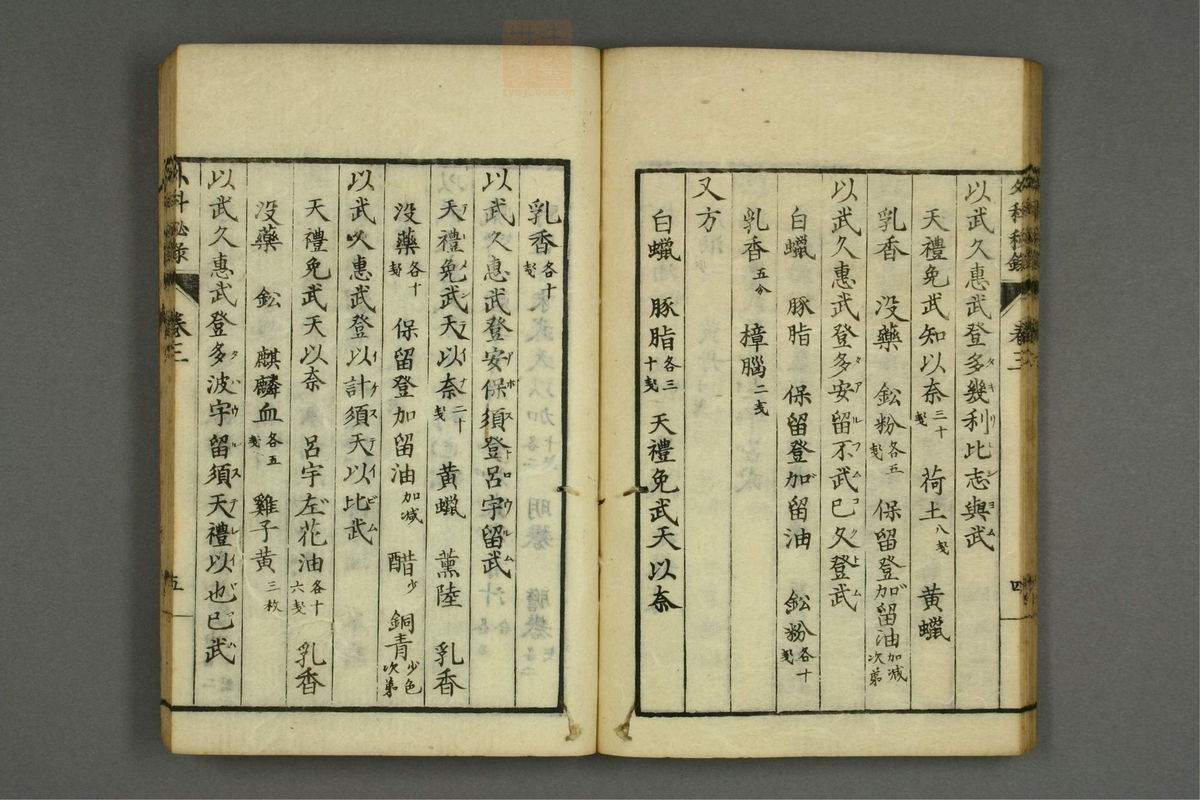 以武久惠武登多幾利比志與武
天禮免武知以奈三十戔 荷土八戔 黃蠟
乳香 没藥 鈆粉各五戔 保留登加留油加减次第
以武久惠武登多安留不武已久登武
白蠟 豚脂 保留登加留油 鈆粉各十戔
乳香五分 樟腦二戔
又方
白蠟 豚脂各三十戔 天禮免武天以奈
卷三
四
乳香各十戔
以武久惠武登安保須登呂宇留武
天禮免武天以奈二十戔 黃蠟 薰陸 乳香
没藥各十戔 保留登加留油加减 醋少 銅青少色次第
以武久惠武登以計須天以比武
天禮免武天以奈 呂宇左花油各十六戔 乳香
没藥 鈆 麒麟血各五戔 雞子黃三枚
以武久惠武登多波宇留須天禮以也已武
外科秘录 卷三
五